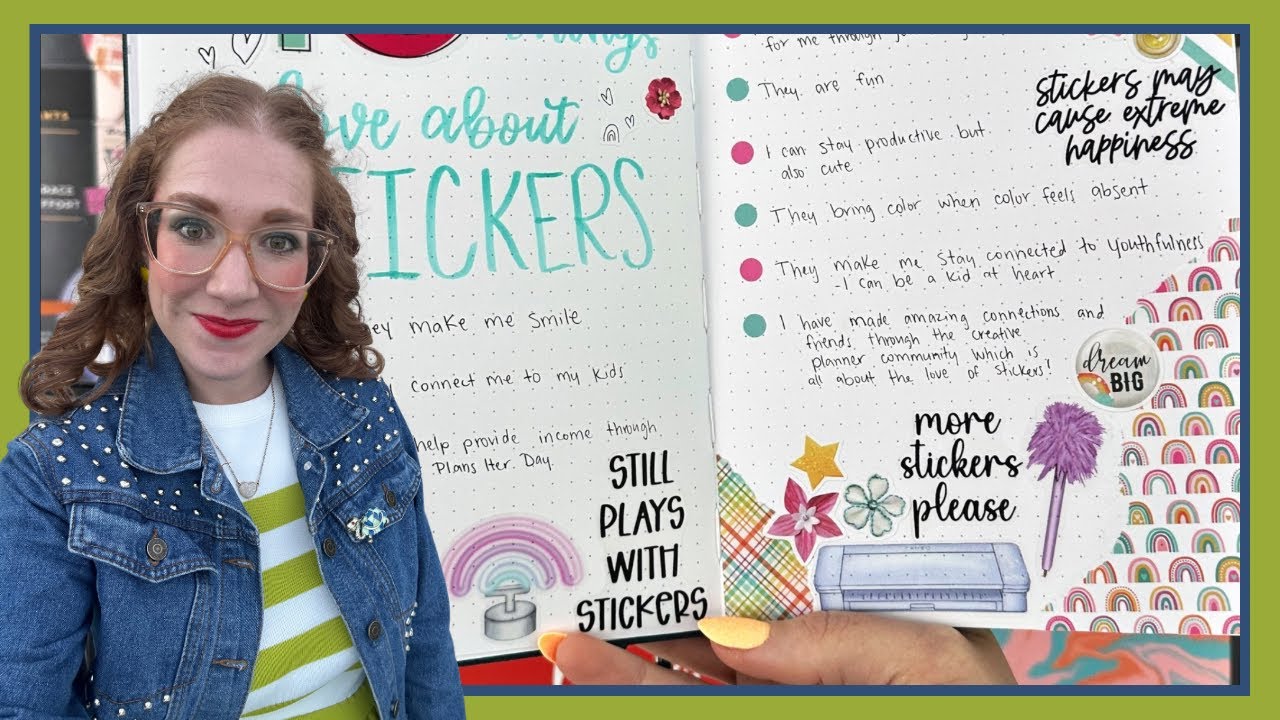 things
love about
STICKERS
They make me smile
connect me to my kids
help provide income through
Plans Her Day.
STILL
PLAYS
WITH
STICKERS
for me through
They are fun
I can stay productive but
also cute
They bring color when color feels absent
They make me stay connected to youthfulness
-I can be a kid at heart
I have made amazing connections and
friends through the creative
planner community which is
all about the love of stickers!
stickers may
cause extreme
happiness
dream
BIG
more
stickers
please